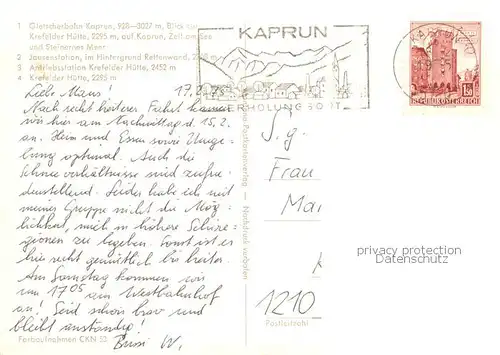 1 Gletscherbahn Kaprun, 928–3027 m, Blick
Krefelder Hütte, 2295 m, auf Kaprun, Zell am See
und Steinernes Meer
2 Jausenstation, im Hintergrund Rettenwand,
3 Antriebsstation Krefelder Hütte, 2452 m
4 Krefelder Hütte, 2295 m
KAPRUN
ERHOLUNGSORT
REPUBLIK ÖSTERREICH
1.50
17.2.75
Liebe Maus!
Nach recht heiterer Fahrt kamen
wir hier am Nachmittag d. 15.2.
an. Heim und Essen sowie Umge-
bung optimal. Auch die
Schneeverhältnisse sind zufrie-
denstellend. Leider habe ich mit
meiner Gruppe nicht die Mög-
lichkeit, mich in höhere Schire-
gionen zu begeben. Sonst ist es
hier recht gemütlich bis heiter.
Am Samstag kommen wir
um 17 05 am Westbahnhof
an! Seid schön brav und
bleibt anständig!
W.
Farbaufnahmen CKN 53
Postkartenverlag — Nachdruck verboten
S.g.
Frau
Mar
1210
Postleitzahl
privacy protection
Datenschutz